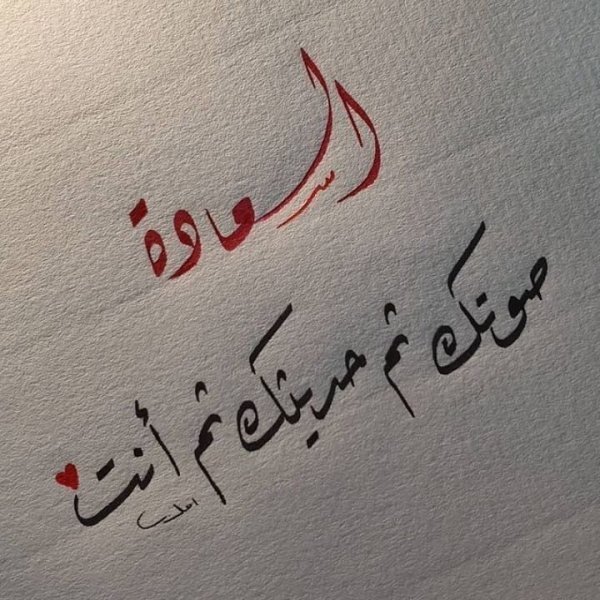 السعادة
صوتك ثم حديثك ثم أنت